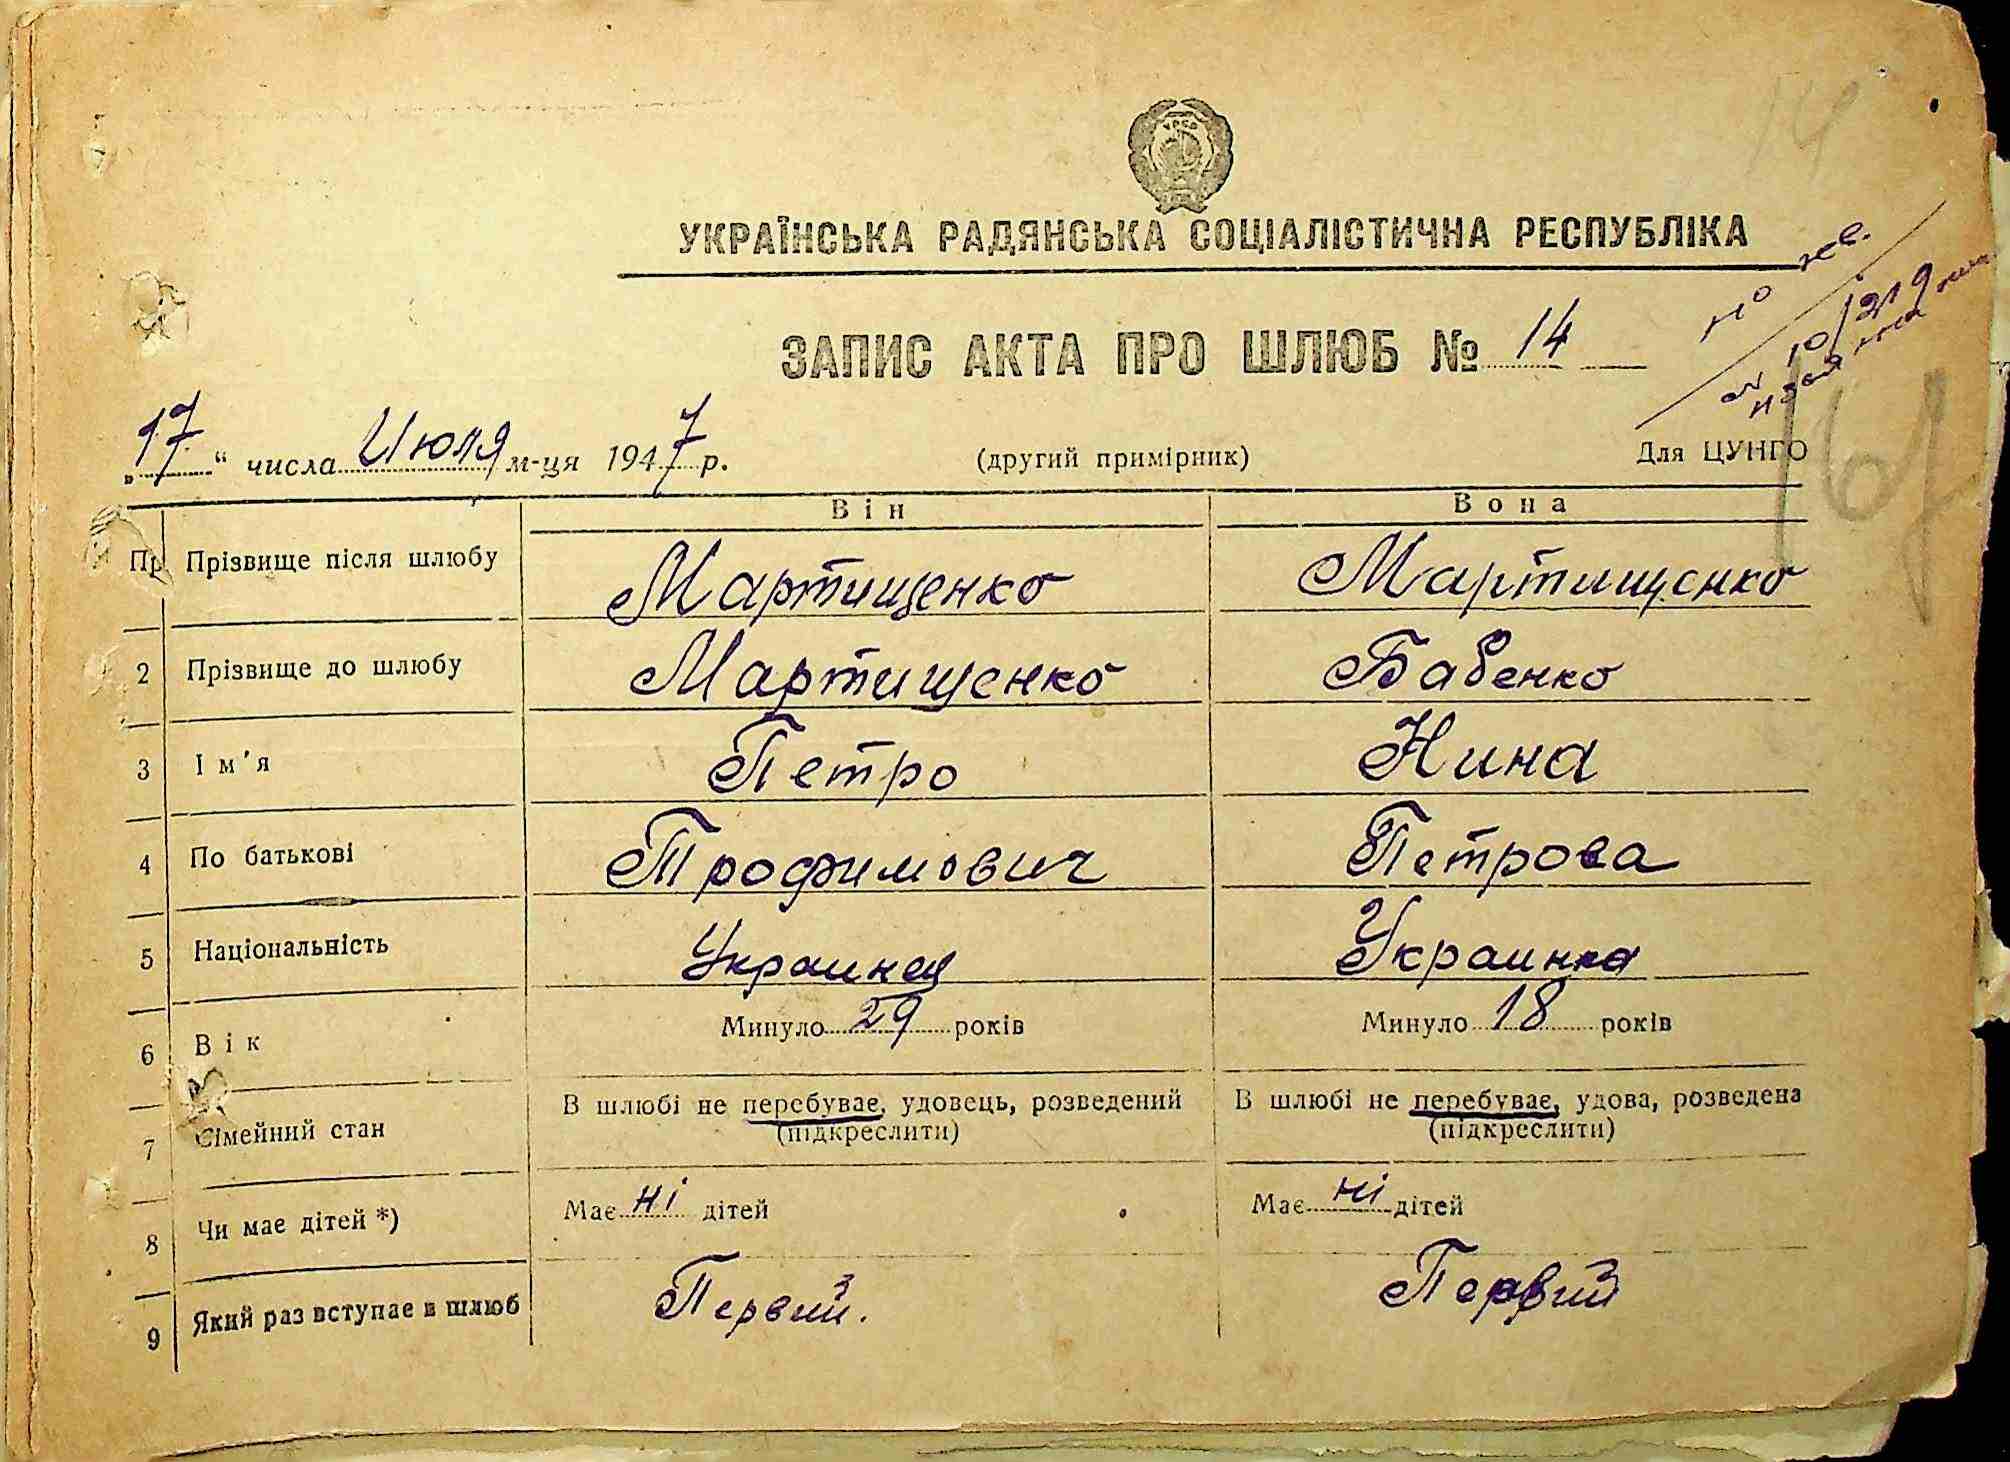 УРСР
УКРАЇНСЬКА РАДЯНСЬКА СОЦІАЛІСТИЧНА РЕСПУБЛІКА
ЗАПИС АКТА ПРО ШЛЮБ № 14
„17“ числа Июля м-ця 1947 р. (другий примірник) Для ЦУНГО
Він Вона
Пр Прізвище після шлюбу Мартищенко Мартищенко
2 Прізвище до шлюбу Мартищенко Бабенко
3 Ім'я Петро Нина
4 По батькові Трофимович Петрова
5 Національність Украинец Украинка
6 Вік Минуло 29 років Минуло 18 років
7 Сімейний стан В шлюбі не перебуває, удовець, розведений В шлюбі не перебуває, удова, розведена
(підкреслити) (підкреслити)
8 Чи має дітей *) Має ні дітей Має ні дітей
9 Який раз вступає в шлюб Первий. Первий